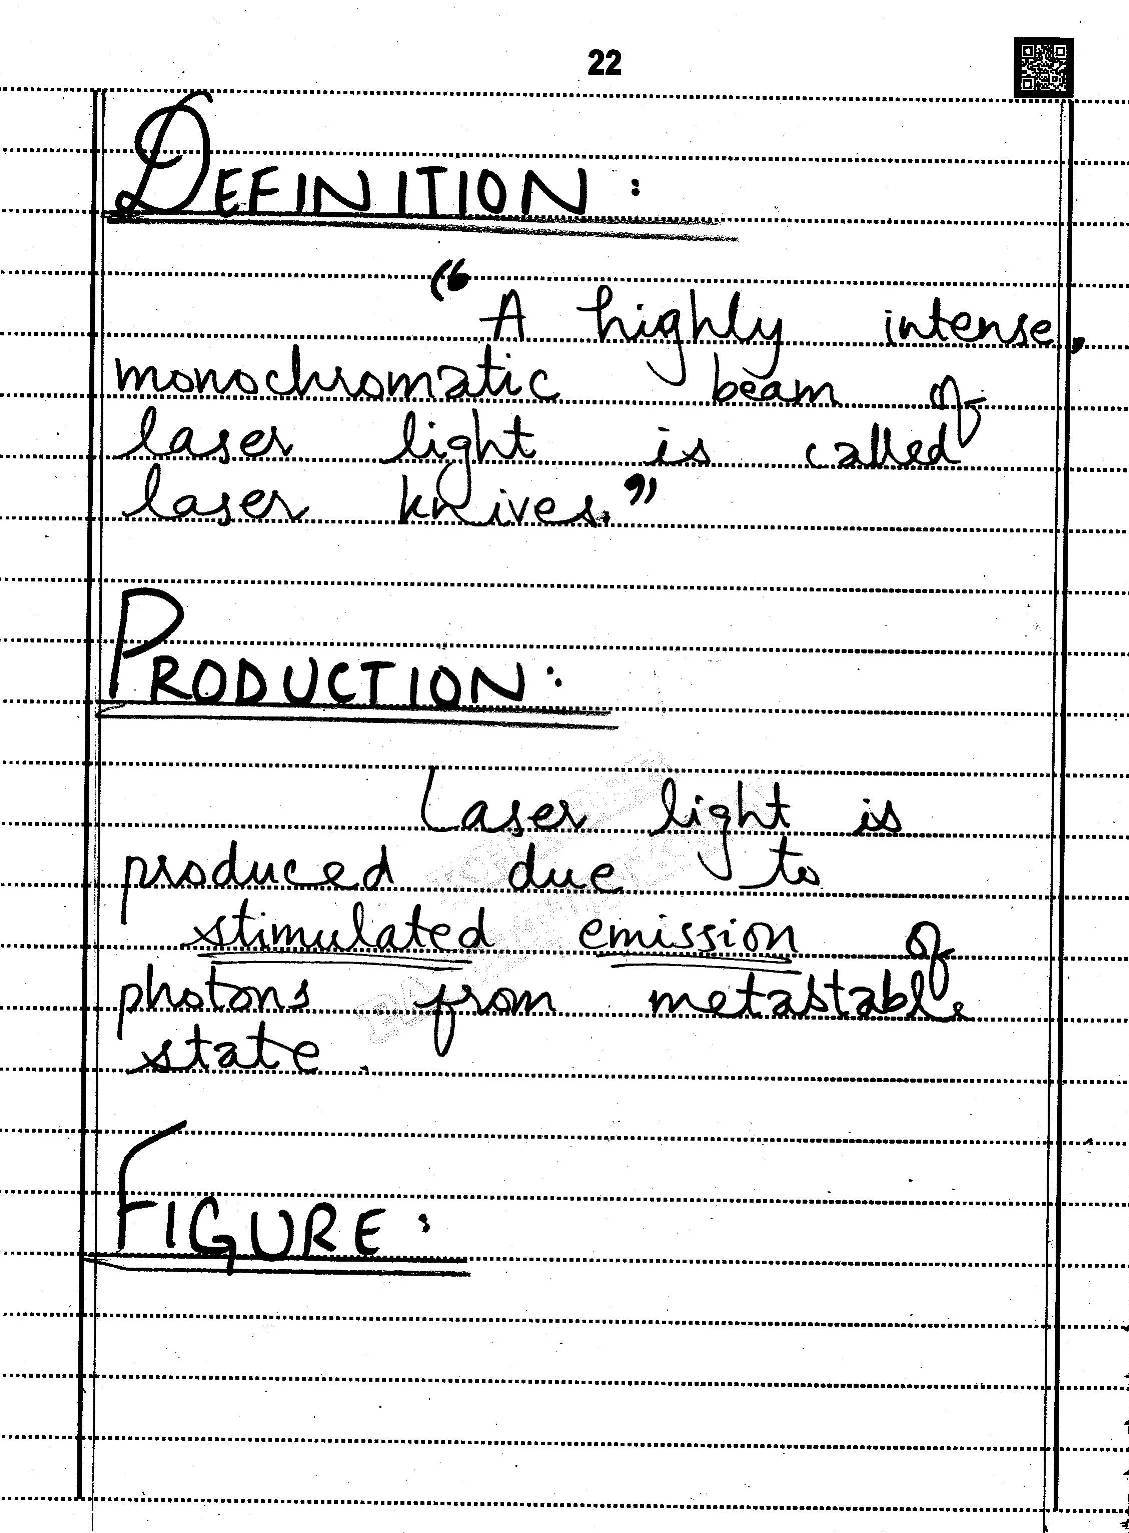 22
DEFINITION:
"A highly intense,
monochromatic beam of
laser light is called
laser knives."
PRODUCTION:
Laser light is
produced due to
stimulated emission of
photons from metastable
state.
FIGURE: